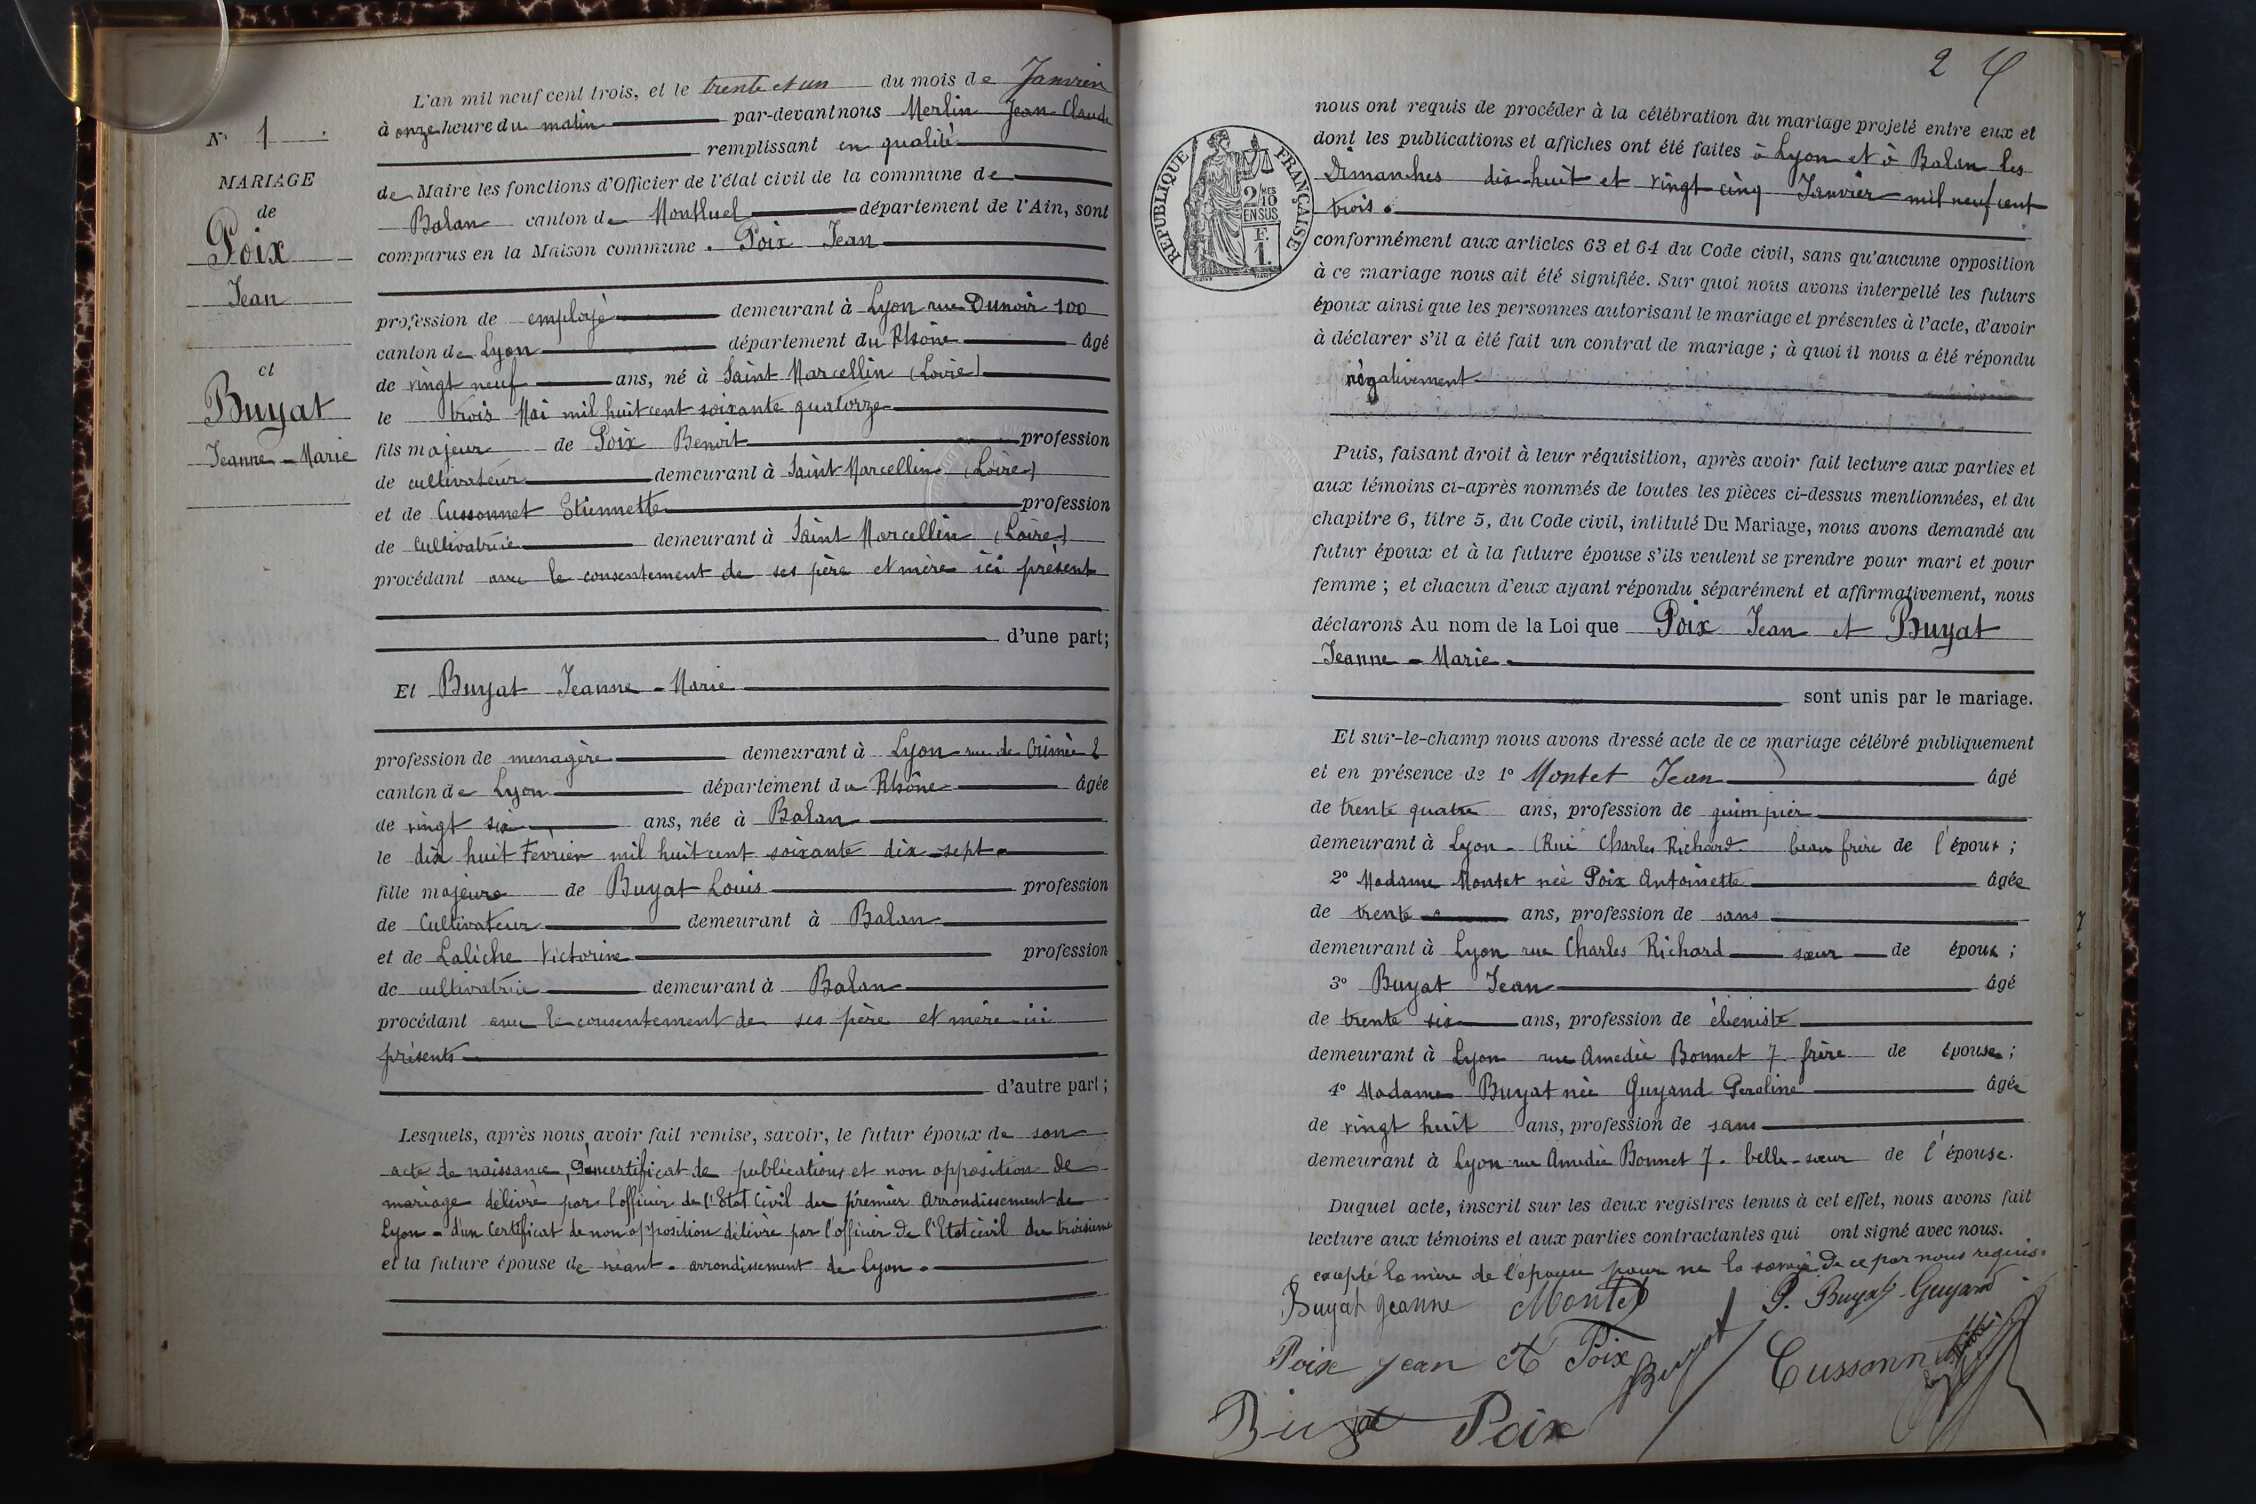 N° 1
MARIAGE
de
Poix
Jean
et
Buyat
Jeanne - Marie
L'an mil neuf cent trois, et le trente et un du mois de Janvier
à onze heure du matin par-devant nous Merlin Jean Claude
remplissant en qualité
de Maire les fonctions d'Officier de l'état civil de la commune de
Balan canton de Montluel département de l'Ain, sont
comparus en la Maison commune. Poix Jean
profession de employé demeurant à Lyon rue Dunoir 100
canton de Lyon département du Rhône âgé
de vingt neuf ans, né à Saint Marcellin (Loire)
le trois Mai mil huit cent soixante quatorze
fils majeur de Poix Benoit profession
de cultivateur demeurant à Saint Marcellin (Loire)
et de Cussonnet Etiennette profession
de Cultivatrice demeurant à Saint Marcellin (Loire)
procédant avec le consentement de ses père et mère ici présent
d'une part;
Et Buyat Jeanne - Marie
profession de menagère demeurant à Lyon rue de Crimée 2
canton de Lyon département du Rhône âgée
de vingt six ans, née à Balan
le dix huit Février mil huit cent soixante dix-sept
fille majeure de Buyat Louis profession
de Cultivateur demeurant à Balan
et de Laliche Victorine profession
de cultivatrice demeurant à Balan
procédant avec le consentement de ses père et mère ici
présents
d'autre part;
Lesquels, après nous avoir fait remise, savoir, le futur époux de son
acte de naissance, d'un certificat de publications et non opposition de
mariage délivré par l'officier de l'Etat Civil du premier arrondissement de
Lyon - d'un Certificat de non opposition délivré par l'officier de l'Etat civil du troisieme
et la future épouse de néant. arrondissement de Lyon.
2
nous ont requis de procéder à la célébration du mariage projeté entre eux et
dont les publications et affiches ont été faites à Lyon et à Balan les
Dimanches dix-huit et vingt cinq Janvier mil neuf cent
trois.
REPUBLIQUE FRANÇAISE
2/10 MES
EN SUS
F.
1.
conformément aux articles 63 et 64 du Code civil, sans qu'aucune opposition
à ce mariage nous ait été signifiée. Sur quoi nous avons interpellé les futurs
époux ainsi que les personnes autorisant le mariage et présentes à l'acte, d'avoir
à déclarer s'il a été fait un contrat de mariage ; à quoi il nous a été répondu
négativement
Puis, faisant droit à leur réquisition, après avoir fait lecture aux parties et
aux témoins ci-après nommés de toutes les pièces ci-dessus mentionnées, et du
chapitre 6, titre 5, du Code civil, intitulé Du Mariage, nous avons demandé au
futur époux et à la future épouse s'ils veulent se prendre pour mari et pour
femme ; et chacun d'eux ayant répondu séparément et affirmativement, nous
déclarons Au nom de la Loi que Poix Jean et Buyat
Jeanne - Marie
sont unis par le mariage.
Et sur-le-champ nous avons dressé acte de ce mariage célébré publiquement
et en présence de 1° Montet Jean âgé
de trente quatre ans, profession de guimpier
demeurant à Lyon - (Rue Charles Richard beau frère de l'époux ;
2° Madame Montet née Poix Antoinette âgée
de trente ans, profession de sans
demeurant à Lyon rue Charles Richard sœur de époux ;
3° Buyat Jean âgé
de trente six ans, profession de ébeniste
demeurant à Lyon rue Amedée Bonnet 7 frère de épouse ;
4° Madame Buyat née Guyand Peroline âgée
de vingt huit ans, profession de sans
demeurant à Lyon rue Amedée Bonnet 7. belle-sœur de l'épouse.
Duquel acte, inscrit sur les deux registres tenus à cet effet, nous avons fait
lecture aux témoins et aux parties contractantes qui ont signé avec nous.
excepté la mère de l'épouse pour ne la savoir de ce par nous requis.
Buyat Jeanne Montet P. Buyat Guyand
Poix Jean A Poix Cussonnet
Buyat Poix